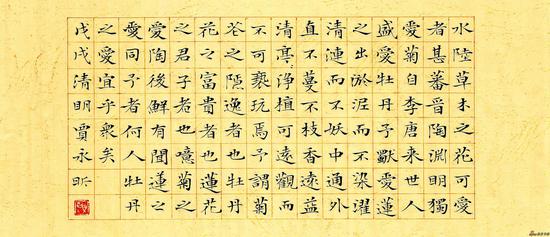 水陸草木之花可愛
者甚蕃晉陶淵明獨
愛菊自李唐来世人
盛愛牡丹予獨愛蓮
之出淤泥而不染濯
清漣而不妖中通外
直不蔓不枝香遠益
清亭淨植可遠觀而
不可褻玩焉予謂菊
花之隱逸者也牡丹
花之富貴者也蓮花
之君子者也噫菊之
愛陶後鮮有聞蓮之
愛同予者何人牡丹
之愛宜乎衆矣
戊戌清明賈永昕